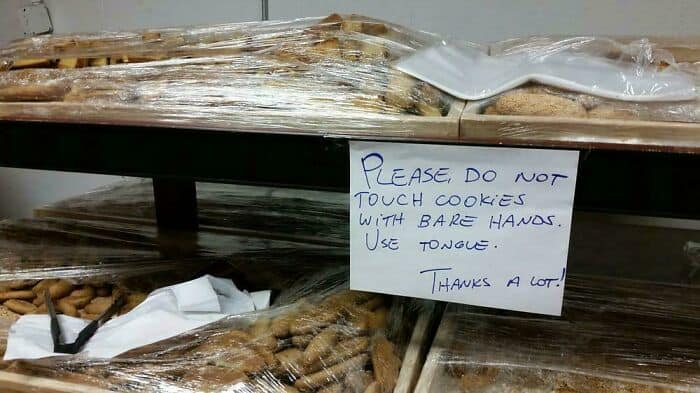 PLEASE, DO NOT
TOUCH COOKIES
WITH BARE HANDS.
USE TONGUE.
THANKS A LOT!